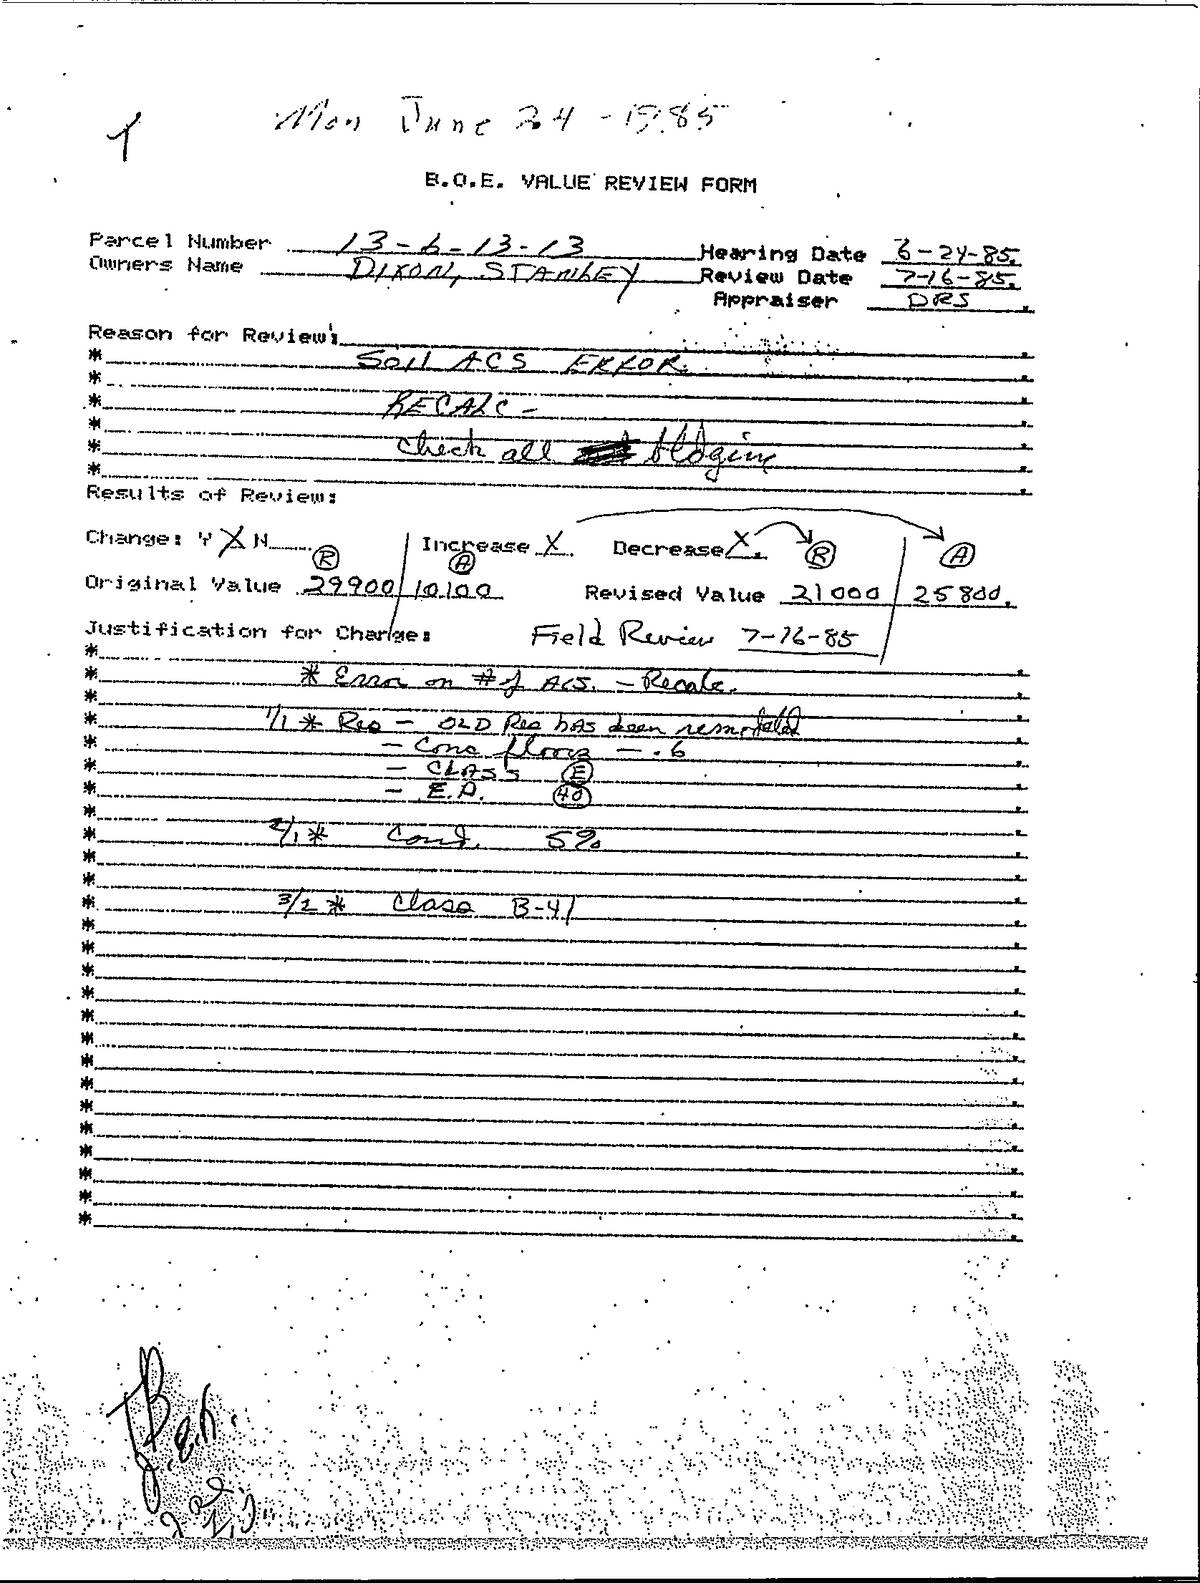 Mon June 24 - 1985
B.O.E. VALUE REVIEW FORM
Parcel Number 13-6-13-13 Hearing Date 6-24-85.
Owners Name DIXON, STANLEY Review Date 7-16-85.
Appraiser DRS.
Reason for Review:
* SOIL ACS ERROR.
*
* RECALC -
*
* Check all bldging
*
Results of Review:
Change: Y X N Increase X Decrease X. R A
R A
Original Value 29900 10100 Revised Value 21000 25800.
Justification for Change: Field Review 7-16-85
*
* * Error on # of ACS. - Recalc.
*
* 1/1 * Res - OLD Res has been remodeled
* - Conc floors - .6
* - CLASS E
* - E.A. 40
*
* 2/1 * Cond. 5%
*
*
* 3/2 * Class B-41
*
*
*
*
*
*
*
*
*
*
*
*
*
*